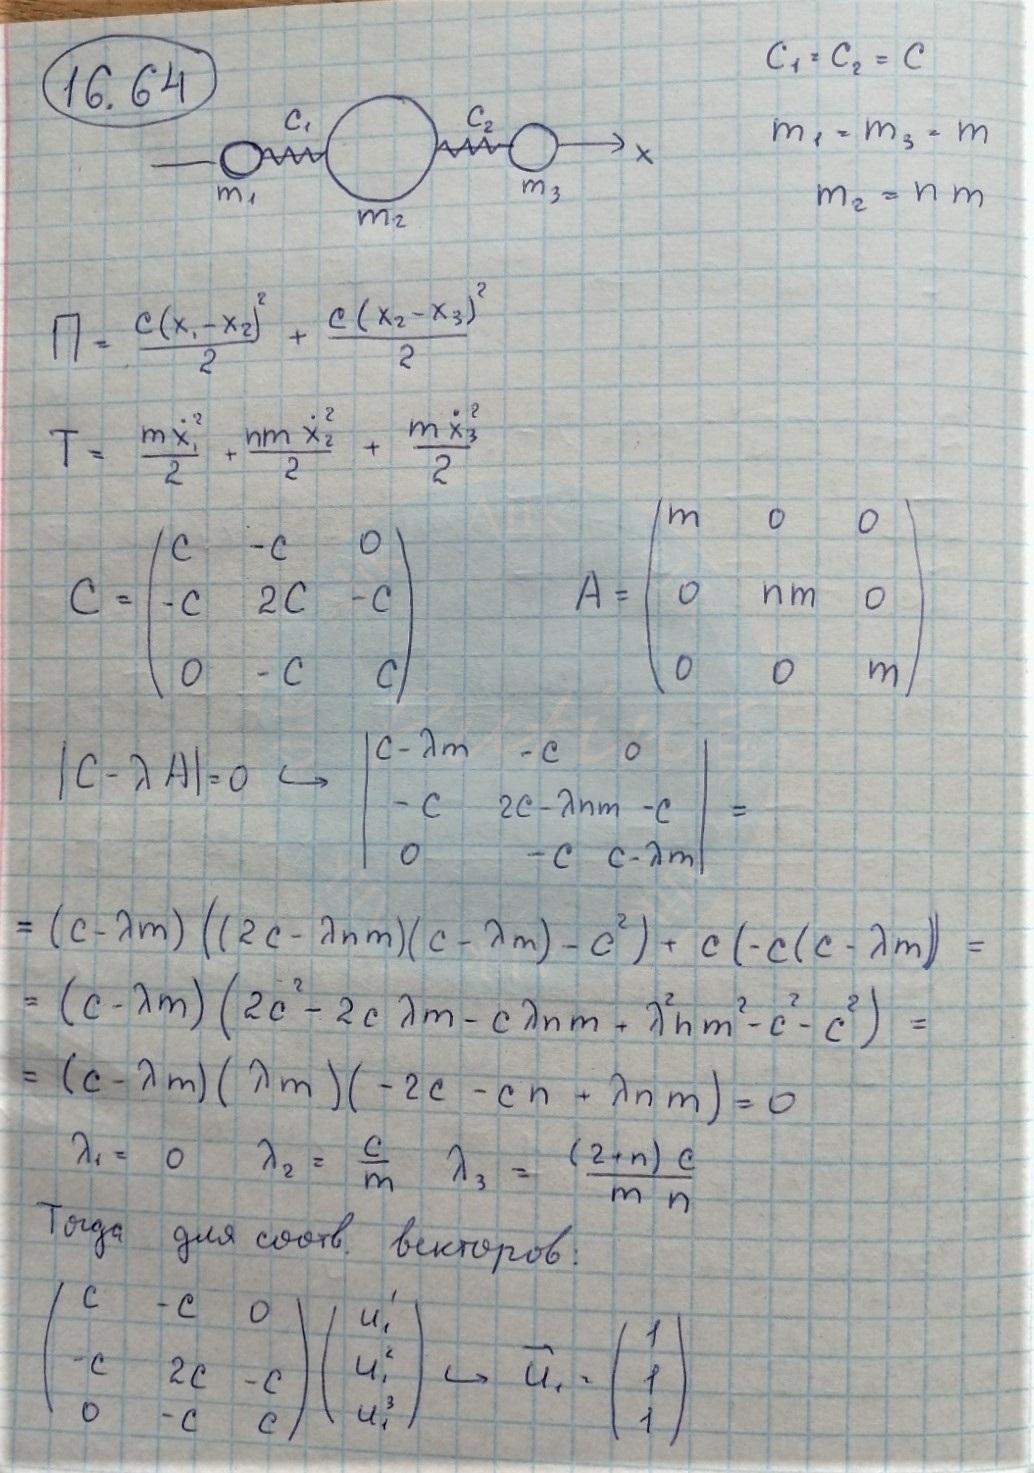 16.64
C₁ = C₂ = C
m₁ = m₃ = m
m₂ = n m
C₁ C₂ x
m₁ m₂ m₃
П = c(x₁ - x₂)²/2 + c(x₂ - x₃)²/2
T = mẋ₁²/2 + nmẋ₂²/2 + mẋ₃²/2
C = ( c -c 0
-c 2c -c
0 -c c )
A = ( m 0 0
0 nm 0
0 0 m )
|C - λA| = 0 ↪ | c-λm -c 0
-c 2c-λnm -c
0 -c c-λm | =
= (c - λm)((2c - λnm)(c - λm) - c²) + c(-c(c - λm)) =
= (c - λm)(2c² - 2cλm - cλnm + λ²nm² - c² - c²) =
= (c - λm)(λm)(-2c - cn + λnm) = 0
λ₁ = 0 λ₂ = c/m λ₃ = (2+n)c/(m n)
Тогда для соотв. векторов:
( c -c 0
-c 2c -c
0 -c c ) ( u₁¹
u₁²
u₁³ ) ↪ u⃗₁ = ( 1
1
1 )